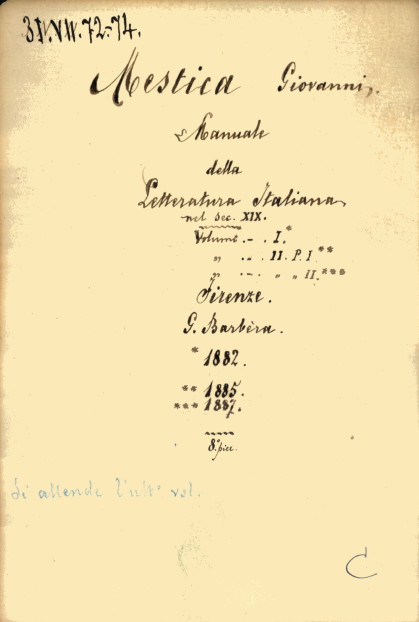 31.VII.72-74.
Mestica Giovanni.
Manuale
della
Letteratura Italiana
nel sec. XIX.
Volume - . I.*
„ - . II. P. I**
„ - . „ „ II.***
Firenze.
G. Barbèra.
* 1882.
** 1885.
*** 1887.
8.° picc.
Si attende l'ult° vol.
C